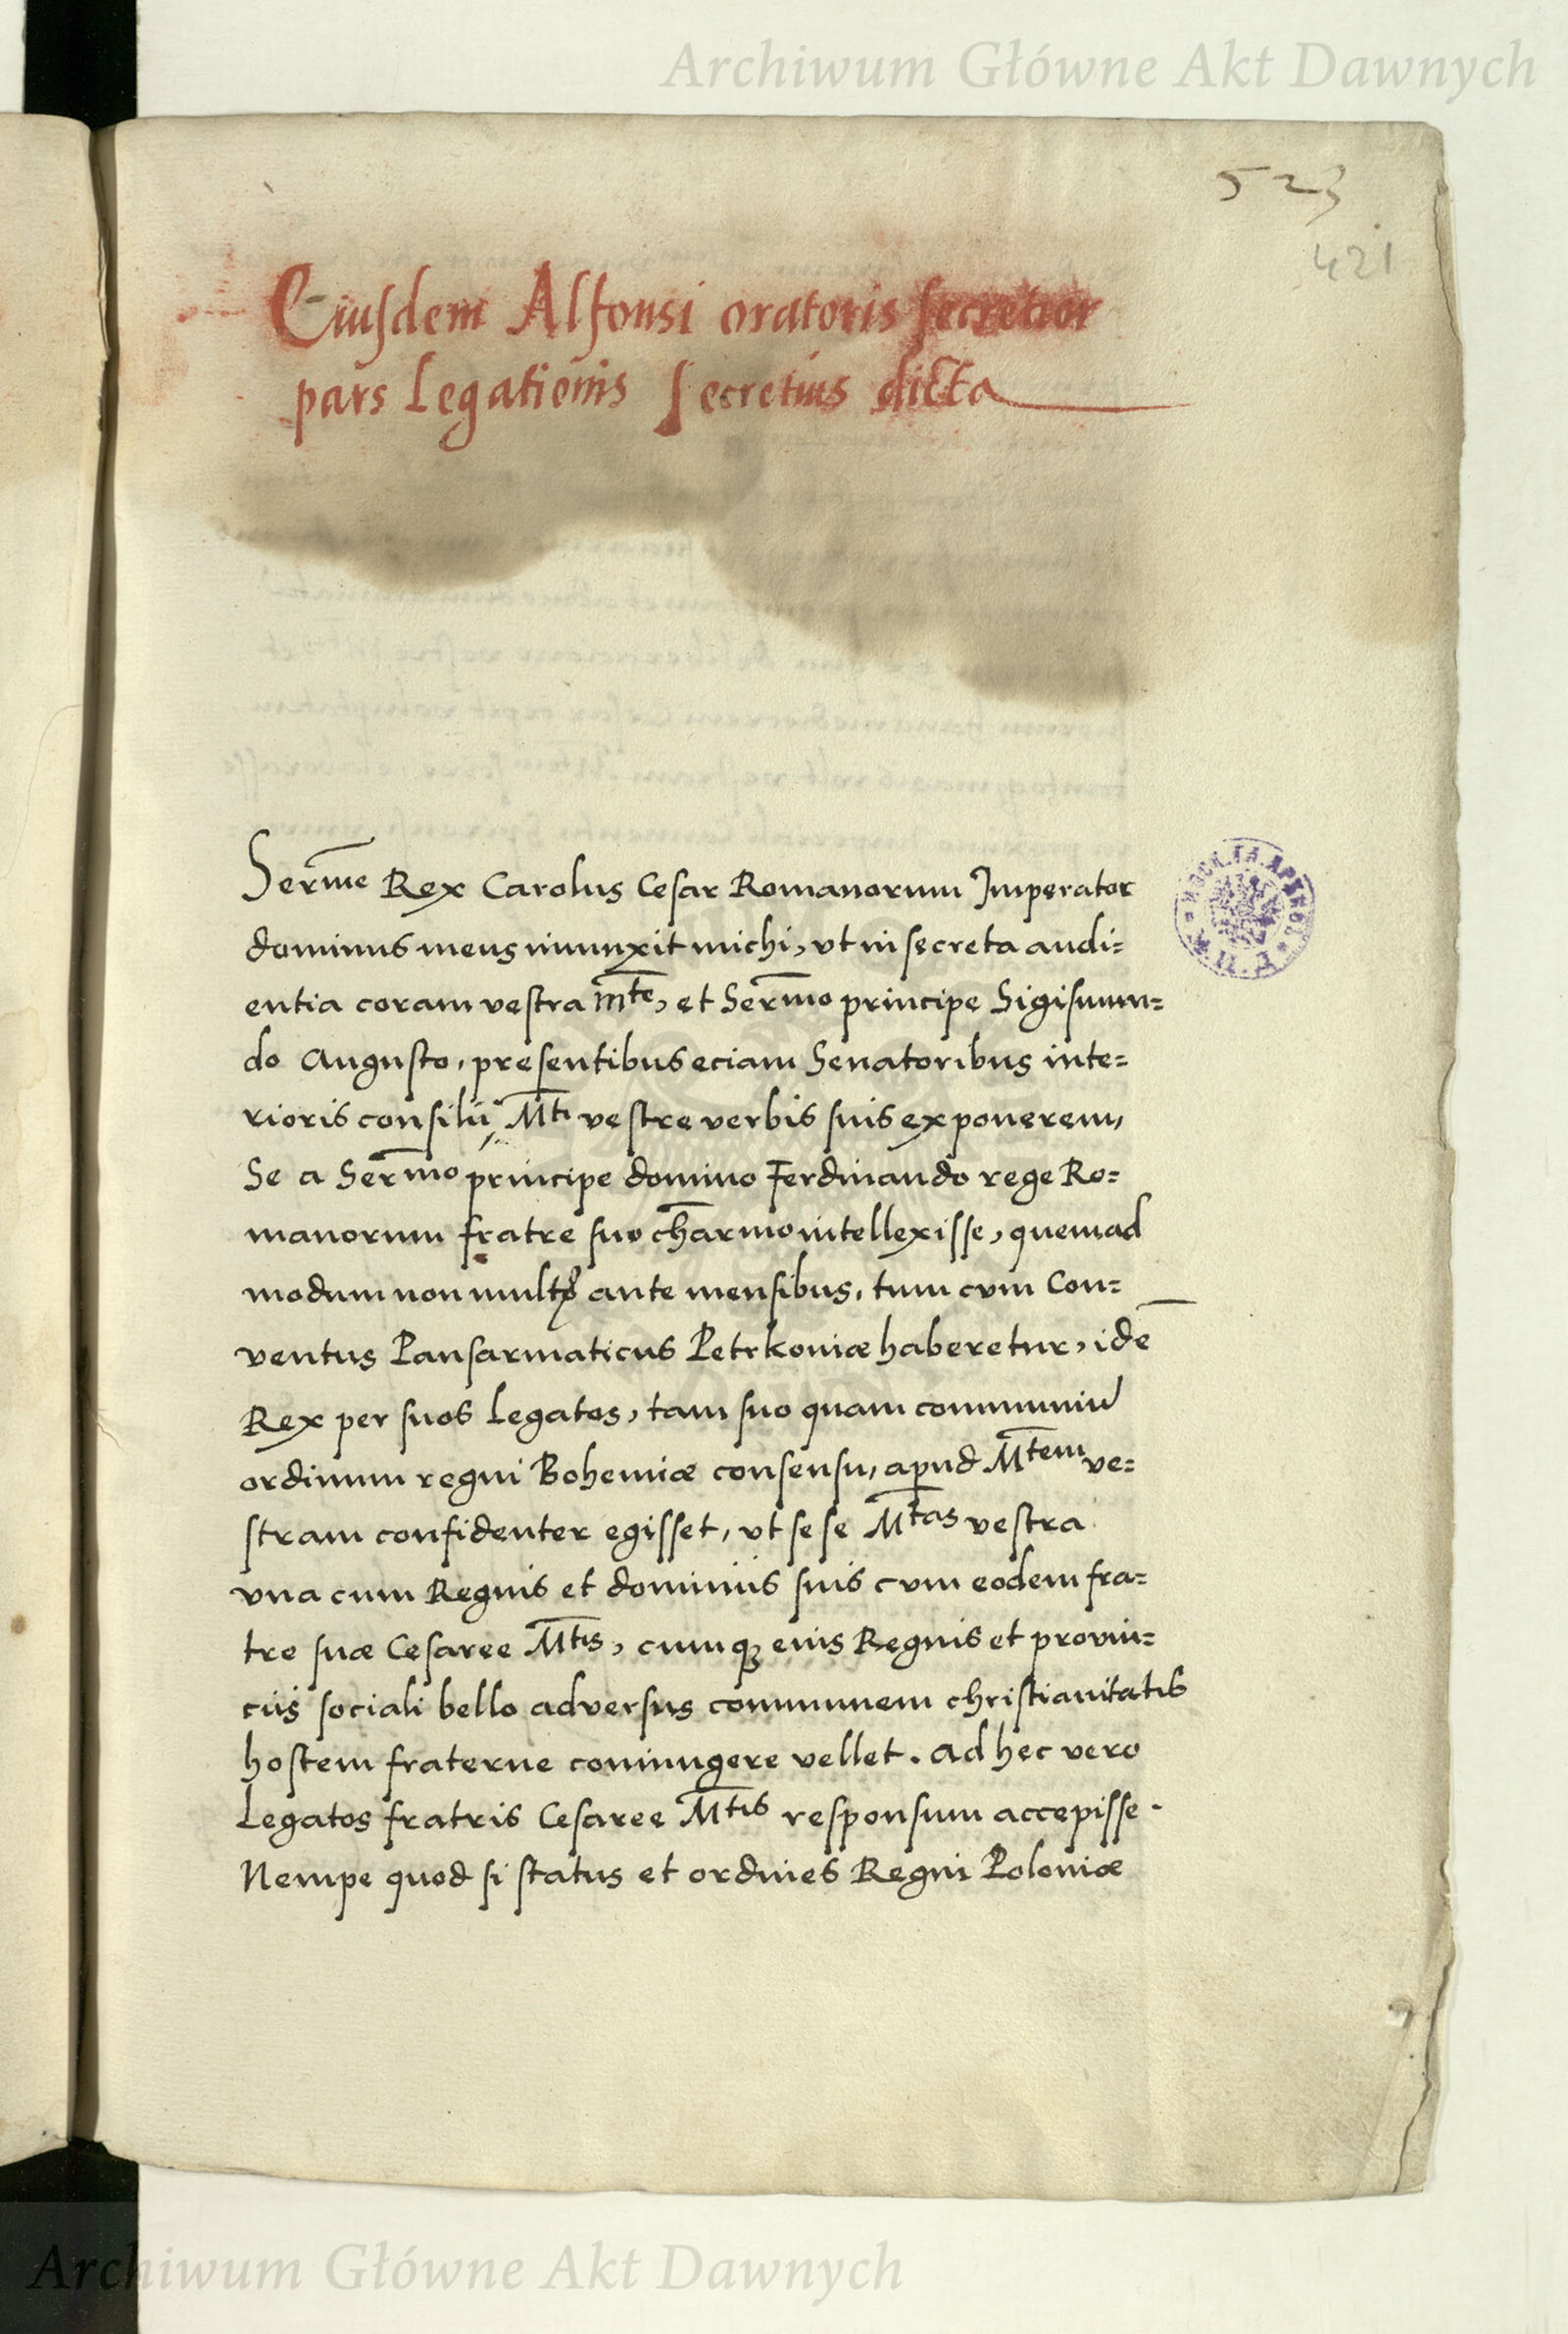 Archiwum Główne Akt Dawnych
523
421
Eiusdem Alfonsi oratoris secretior
pars Legationis secretius dicta
Serme Rex Carolus Cesar Romanorum Imperator
dominus meus iniunxit michi, vt in secreta audi=
entia coram vestra mte, et Sermo principe Sigismun=
do Augusto, presentibus eciam Senatoribus inte=
rioris consilii, Mti vestre verbis suis exponerem,
Se a Sermo principe domino Ferdinando rege Ro=
manorum fratre suo charmo intellexisse, quemad
modum non multis ante mensibus, tum cum Con=
ventus Pansarmaticus Petrkoniæ haberetur, idē
Rex per suos Legatos, tam suo quam communiu
ordinum regni Bohemiæ consensu, apud Mtem ve=
stram confidenter egisset, vt sese Mtas vestra
vna cum Regnis et dominiis suis cum eodem fra=
tre suæ Cesaree Mtis, cumqꝫ eius Regnis et provin=
ciis sociali bello adversus communem christianitatis
hostem fraterne coniungere vellet. Ad hec vero
Legatos fratris Cesaree Mtis responsum accepisse.
Nempe quod si status et ordines Regni Poloniæ
Archiwum Główne Akt Dawnych